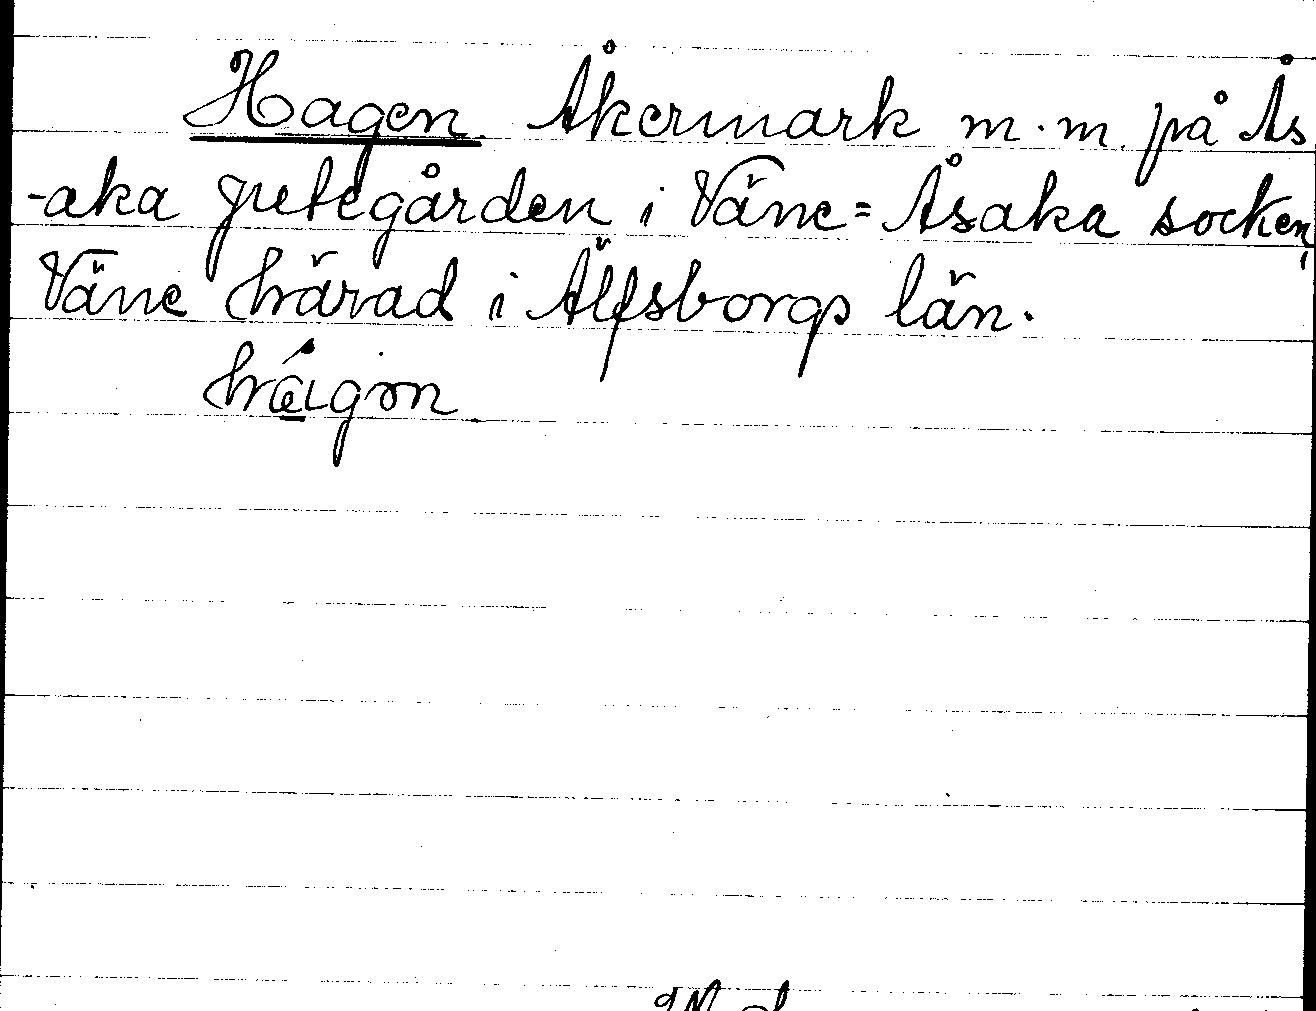 Hagen. Åkermark m.m. på Ås
-aka gretegården i Väne=Åsaka socken,
Väne härad i Älfsborgs län.